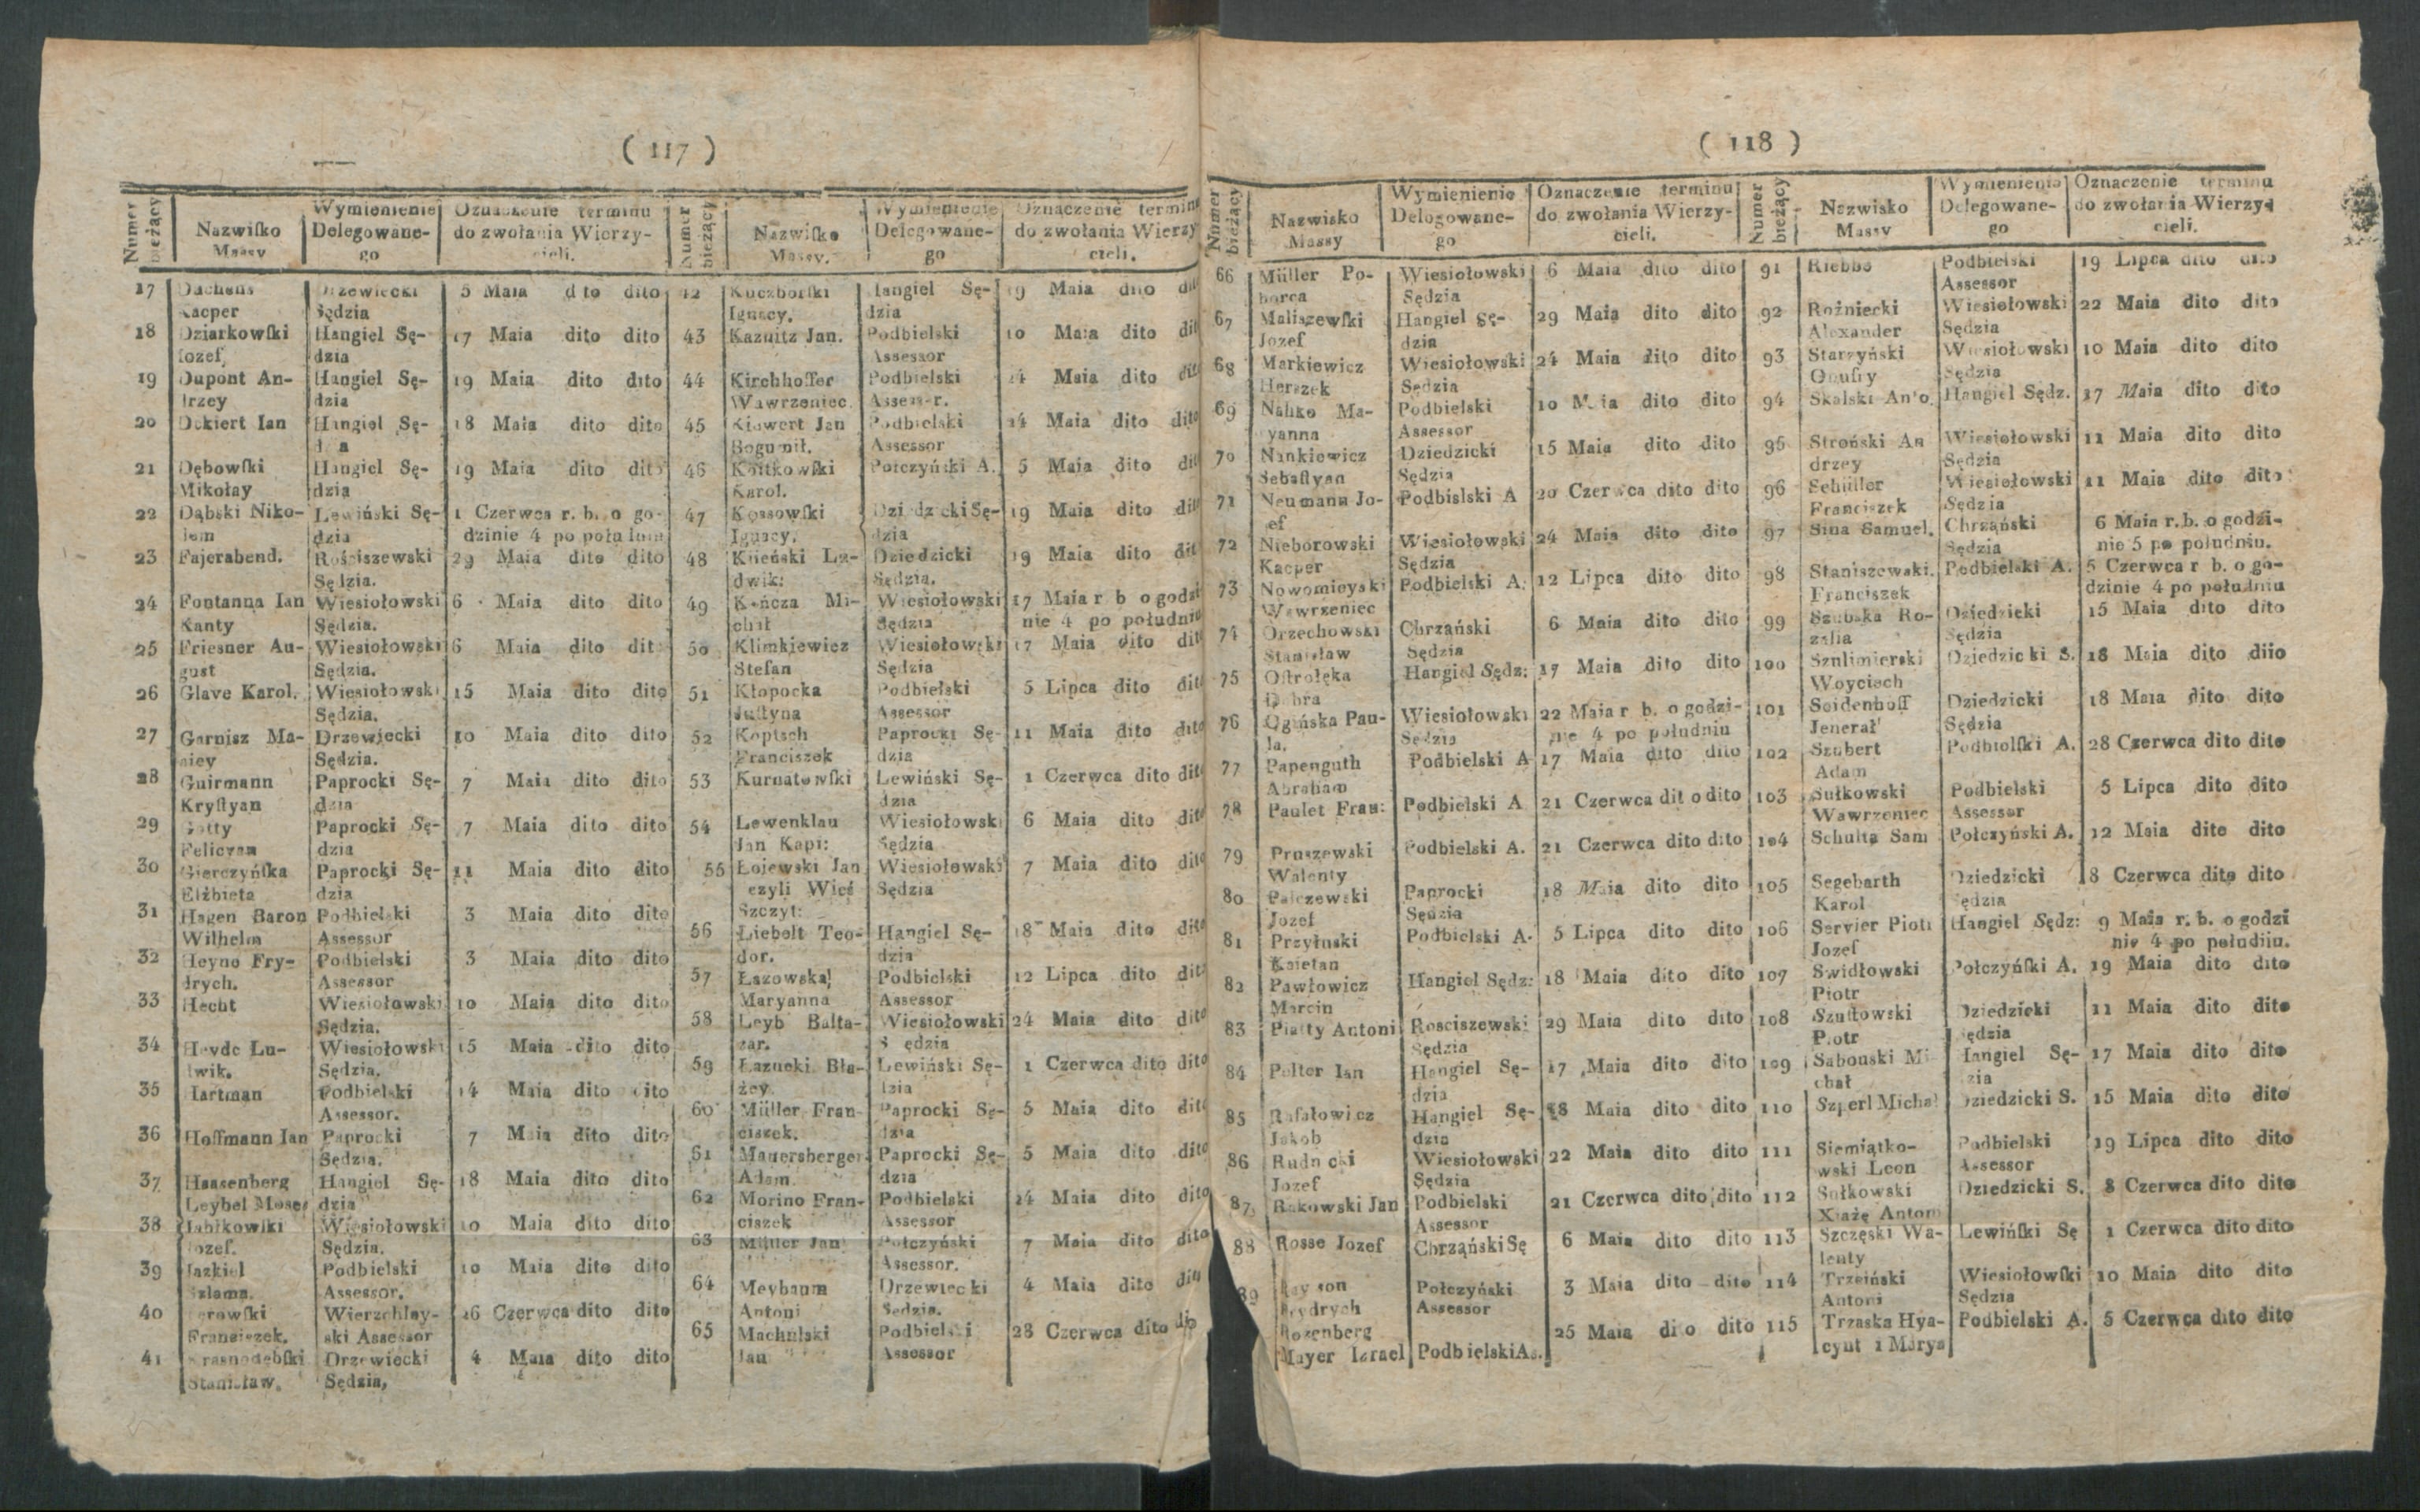 ( 117 )
Numer bieżący
Nazwiſko Massy
Wymienienie Delegowane-go
Oznaczenie terminu do zwołania Wierzy-cieli.
17 Kacper Sędzia 5 Maia dito dito
18 Dziarkowſki Iozef, Hangiel Sę-dzia 17 Maia dito dito
19 Dupont An-drzey Hangiel Sę-dzia 19 Maia dito dito
20 Dekiert Ian Hangiel Sę-dzia 18 Maia dito dito
21 Dębowſki Mikołay Hangiel Sę-dzia 19 Maia dito dito
22 Dąbski Niko-lem Lewiński Sę-dzia 1 Czerwca r. b. o go-dzinie 4 po południu
23 Fajerabend. Rościszewski Sędzia. 29 Maia dito dito
24 Fontanna Ian Kanty Wiesiołowski Sędzia. 6 Maia dito dito
25 Friesner Au-gust Wiesiołowski Sędzia. 6 Maia dito dito
26 Glave Karol. Wiesiołowski Sędzia. 15 Maia dito dito
27 Garnisz Ma-ciey Drzewiecki Sędzia. 10 Maia dito dito
28 Guirmann Kryſtyan Paprocki Sę-dzia 7 Maia dito dito
29 Gotty Felicyan Paprocki Sę-dzia 7 Maia dito dito
30 Gierczyńſka Elżbieta Paprocki Sę-dzia 11 Maia dito dito
31 Hagen Baron Wilhelm Podbielski Assessor 3 Maia dito dito
32 Heyno Fry-drych. Podbielski Assessor 3 Maia dito dito
33 Hecht Wiesiołowski Sędzia. 10 Maia dito dito
34 Heyde Lu-dwik. Wiesiołowski Sędzia. 15 Maia dito dito
35 Hartman Podbielski Assessor. 14 Maia dito dito
36 Hoffmann Ian Paprocki Sędzia. 7 Maia dito dito
37 Haasenberg Leybel Moses Hangiel Sę-dzia 18 Maia dito dito
38 Iabłkowſki Iozef. Wiesiołowski Sędzia. 10 Maia dito dito
39 Iazkiel Szlama. Podbielski Assessor. 10 Maia dito dito
40 Franciszek. Wierzchley-ski Assessor 26 Czerwca dito dito
41 Krasnodębſki Stanisław. Drzewiecki Sędzia, 4 Maia dito dito
Numer bieżący
Nazwiſko Massy.
Wymienienie Delegowane-go
Oznaczenie terminu do zwołania Wierzy-cieli.
42 Kuczborſki Ignacy. Hangiel Sę-dzia 19 Maia dito
43 Kaznitz Jan. Podbielski Assessor 10 Maia dito
44 Kirchhoffer Wawrzeniec. Podbielski Assessor. 14 Maia dito
45 Kiawert Jan Bogumił. Podbielski Assessor 14 Maia dito dito
46 Koitkowſki Karol. Połczyński A. 5 Maia dito
47 Kossowſki Ignacy. Dziedzicki Sę-dzia 19 Maia dito
48 Lu-dwik: Dziedzicki Sędzia. 19 Maia dito
49 Kończa Mi-chał Wiesiołowski Sędzia 17 Maia r b o godzi nie 4 po południu
50 Klimkiewicz Stefan Wiesiołowski Sędzia 17 Maia dito
51 Kłopocka Juſtyna Podbielski Assessor 5 Lipca dito
52 Koptsch Franciszek Paprocki Sę-dzia 11 Maia dito dito
53 Kurnatowſki Lewiński Sę-dzia 1 Czerwca dito dito
54 Lewenklau Jan Kapi: Wiesiołowski Sędzia 6 Maia dito dito
55 Łojewski Jan czyli Wieś Szczyt: Wiesiołowski Sędzia 7 Maia dito dito
56 Liebelt Teo-dor. Hangiel Sę-dzia 18 Maia dito dito
57 Łazowska, Maryanna Podbielski Assessor 12 Lipca dito dito
58 Leyb Balta-zar. Wiesiołowski Sędzia 24 Maia dito dito
59 Łazucki Bła-żey. Lewiński Sę-dzia 1 Czerwca dito dito
60 Müller Fran-ciszek. Paprocki Sę-dzia 5 Maia dito dito
61 Mauersberger Adam. Paprocki Sę-dzia 5 Maia dito dito
62 Morino Fran-ciszek Podbielski Assessor 14 Maia dito dito
63 Müller Jan Połczyński Assessor. 7 Maia dito dito
64 Meybaum Antoni Drzewiecki Sędzia. 4 Maia dito
65 Machulski Ian Podbielski Assessor 28 Czerwca dito
( 118 )
Numer bieżący
Nazwisko Massy
Wymienienie Delegowane-go
Oznaczenie terminu do zwołania Wierzy-cieli.
66 Müller Po-borca Wiesiołowski Sędzia 6 Maia dito dito
67 Maliszewſki Jozef Hangiel Sę-dzia 29 Maia dito dito
68 Markiewicz Herszek Wiesiołowski Sędzia 24 Maia dito dito
69 Nahke Ma-yanna Podbielski Assessor 10 Maia dito dito
70 Nankiewicz Sebaſtyan Dziedzicki Sędzia 15 Maia dito dito
71 Neumann Jo-zef Podbislski A 20 Czerwca dito dito
72 Nieborowski Kacper Wiesiołowski Sędzia 24 Maia dito dito
73 Nowomieyski Wawrzeniec Podbielski A. 12 Lipca dito dito
74 Orzechowski Stanisław Chrząński Sędzia 6 Maia dito dito
75 Oſtrołęka Dobra Hangiel Sędz: 17 Maia dito dito
76 Ogińska Pau-la. Wiesiołowski Sędzia 22 Maia r b. o godzi-nie 4 po południu
77 Papenguth Abraham Podbielski A 17 Maia dito dito
78 Paulet Fran: Podbielski A 21 Czerwca dito dito
79 Pruszewski Walenty Podbielski A. 21 Czerwca dito dito
80 Palczewski Jozef Paprocki Sędzia 18 Maia dito dito
81 Przyłuski Kaietan Podbielski A. 5 Lipca dito dito
82 Pawłowicz Marcin Hangiel Sędz: 18 Maia dito dito
83 Piatty Antoni Rosciszewski Sędzia 29 Maia dito dito
84 Polter Ian Hangiel Sę-dzia 17 Maia dito dito
85 Rafałowicz Jakob Hangiel Sę-dzia 18 Maia dito dito
86 Rudnicki Jozef Wiesiołowski Sędzia 22 Maia dito dito
87 Rakowski Jan Podbielski Assessor 21 Czerwca dito dito
88 Rosse Jozef Chrząński Sę 6 Maia dito dito
89 Frydrych Połczyński Assessor 3 Maia dito dito
Rozenberg Mayer Izrael Podbielski As. 25 Maia dito dito
Numer bieżący
Nazwisko Massy
Wymienienie Delegowane-go
Oznaczenie terminu do zwołania Wierzy-cieli.
91 Riebbe Podbielski Assessor 19 Lipca dito dito
92 Rożniecki Alexander Wiesiołowski Sędzia 22 Maia dito dito
93 Starzyński Onufry Wiesiołowski Sędzia 10 Maia dito dito
94 Skalski Anto. Hangiel Sędz. 17 Maia dito dito
95 Stroński An drzey Wiesiołowski Sędzia 11 Maia dito dito
96 Schüller Franciszek Wiesiołowski Sędzia 11 Maia dito dito
97 Sina Samuel. Chrząński Sędzia 6 Maia r. b. o godzi-nie 5 po południu.
98 Staniszewski. Franciszek Podbielski A. 5 Czerwca r b. o go-dzinie 4 po południu
99 Szubska Ro-zalia Dziedzicki Sędzia 15 Maia dito dito
100 Sznlimierski Woyciech Dziedzicki S. 18 Maia dito diio
101 Seidenhoff Jenerał Dziedzicki Sędzia 18 Maia dito dito
102 Szubert Adam Podbielſki A. 28 Czerwca dito dito
103 Sułkowski Wawrzeniec Podbielski Assessor 5 Lipca dito dito
104 Schultz Sam Połczyński A. 12 Maia dito dito
105 Segebarth Karol Dziedzicki Sędzia 8 Czerwca dito dito
106 Servier Piotr Jozef Hangiel Sędz: 9 Maia r. b. o godzi nie 4 po południu.
107 Swidłowski Piotr Połczyńſki A. 19 Maia dito dito
108 Szułłowski Piotr Dziedzicki Sędzia 11 Maia dito dito
109 Sabouski Mi chał Hangiel Sę-dzia 17 Maia dito dito
110 Szperl Michał Dziedzicki S. 15 Maia dito dito
111 Siemiątko-wski Leon Podbielski Assessor 19 Lipca dito dito
112 Sułkowski Xiażę Antoni Dziedzicki S. 8 Czerwca dito dito
113 Szczęski Wa-lenty Lewińſki Sę 1 Czerwca dito dito
114 Trzciński Antoni Wiesiołowſki Sędzia 10 Maia dito dito
115 Trzaska Hya-cynt i Marya Podbielski A. 5 Czerwca dito dito